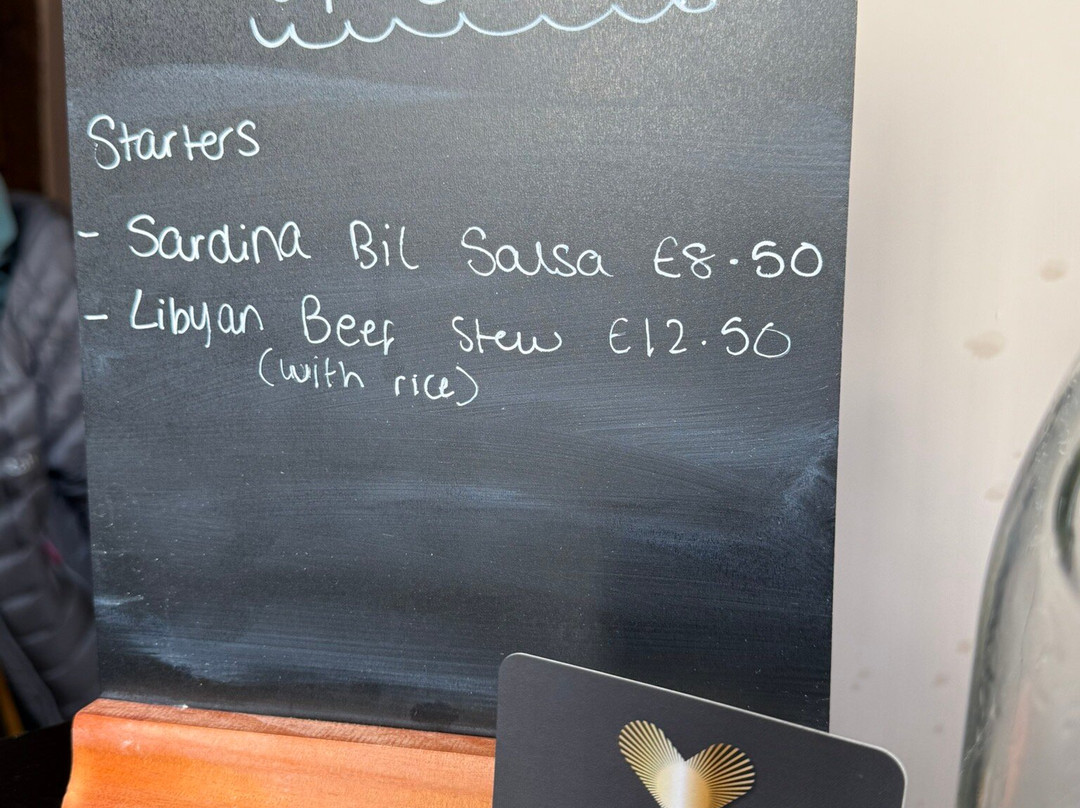 Starters
- Sardina Bil Salsa £8.50
- Libyan Beef Stew £12.50
(with rice)